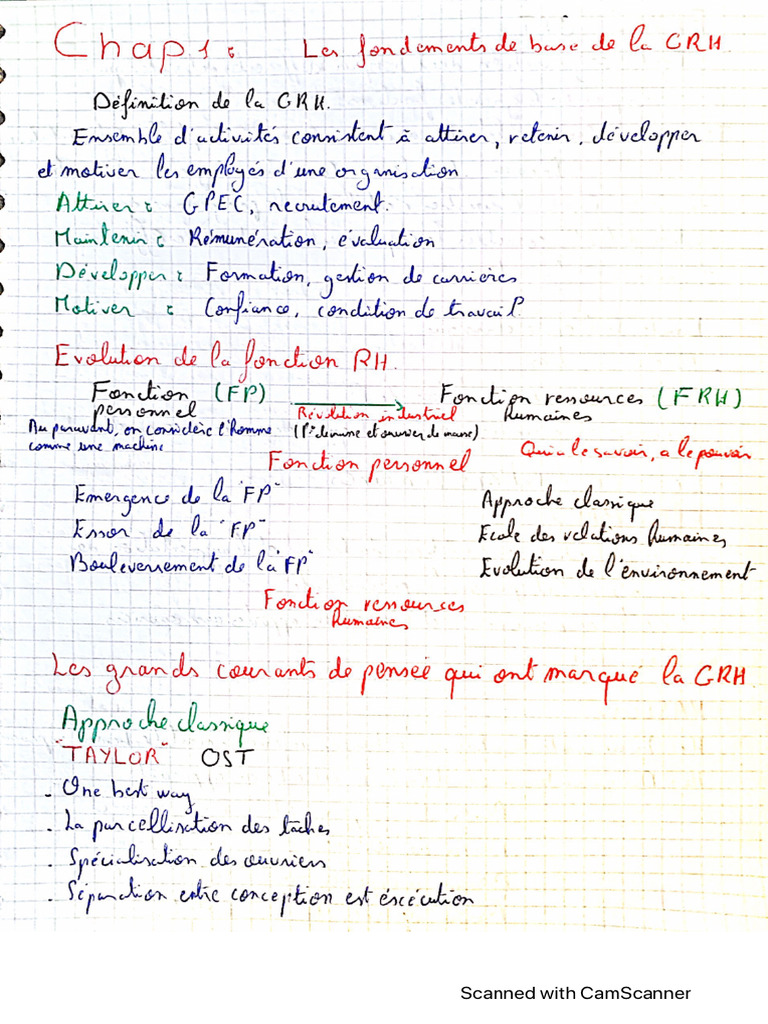 Chap1 : Les fondements de base de la GRH.
Définition de la GRH.
Ensemble d'activités consistent à attirer, retenir, développer
et motiver les employés d'une organisation
Attirer : GPEC, recrutement.
Maintenir : Rémunération, évaluation
Développer : Formation, gestion de carrières
Motiver : Confiance, condition de travail.
Evolution de la fonction RH.
Fonction (FP) Fonction ressources (FRH)
personnel Révolution industriel humaines
Au paravant, on considère l'homme (1° domine et ouvrier de masse)
comme une machine Qui a le savoir, a le pouvoir
Fonction personnel
Emergence de la "FP" Approche classique
Essor de la "FP" Ecole des relations humaines
Bouleversement de la "FP" Evolution de l'environnement
Fonction ressources
humaines
Les grands courants de pensée qui ont marqué la GRH
Approche classique
"TAYLOR" OST
- One best way
- La parcellisation des tâches
- Spécialisation des ouvriers
- Séparation entre conception est éxécution
Scanned with CamScanner